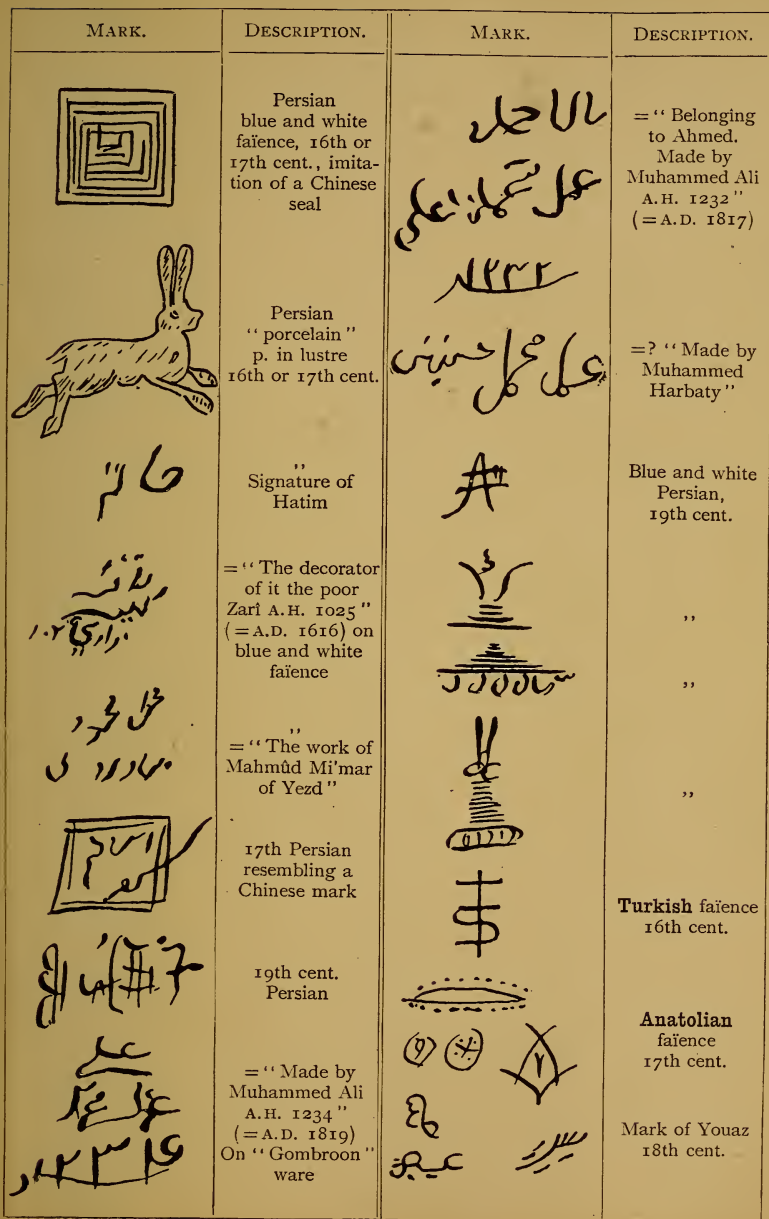 MARK.
DESCRIPTION.
Persian
blue and white
faïence, 16th or
17th cent., imita-
tion of a Chinese
seal
Persian
“ porcelain ”
p. in lustre
16th or 17th cent.
حاتم
,,
Signature of
Hatim
= “ The decorator
of it the poor
Zarî A.H. 1025 ”
( = A.D. 1616) on
blue and white
faïence
,,
= “ The work of
Mahmûd Mi’mar
of Yezd ”
17th Persian
resembling a
Chinese mark
19th cent.
Persian
= “ Made by
Muhammed Ali
A.H. 1234 ”
( = A.D. 1819)
On “ Gombroon ”
ware
MARK.
DESCRIPTION.
عمل محمد علي
١٢٣٢
= “ Belonging
to Ahmed.
Made by
Muhammed Ali
A.H. 1232 ”
( = A.D. 1817)
عمل محمد
= ? “ Made by
Muhammed
Harbaty ”
Blue and white
Persian,
19th cent.
,,
,,
,,
Turkish faïence
16th cent.
Anatolian
faïence
17th cent.
Mark of Youaz
18th cent.